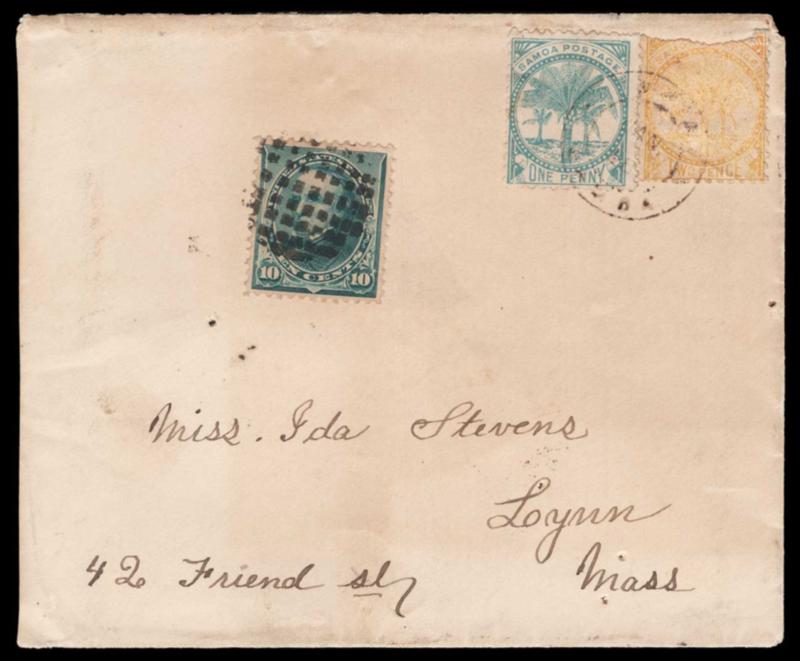 SAMOA POSTAGE
ONE PENNY
TWO PENCE
10 TEN CENTS 10
Miss. Ida Stevens
Lynn
42 Friend st Mass